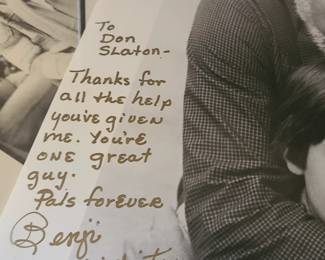 To
Don
Slaton-
Thanks for
all the help
you've given
me. You're
one great
guy.
Pals forever
Benji